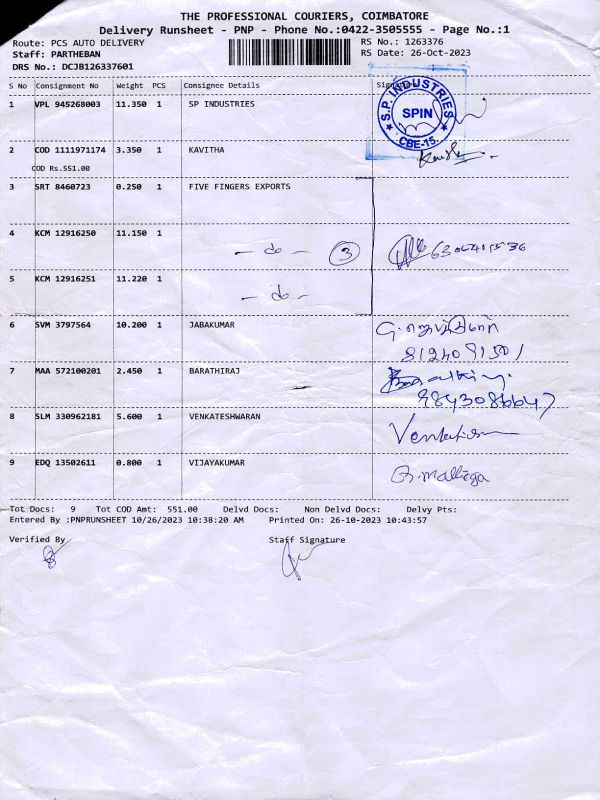 THE PROFESSIONAL COURIERS, COIMBATORE
Delivery Runsheet - PNP - Phone No.:0422-3505555 - Page No.:1
Route: PCS AUTO DELIVERY RS No.: 1263376
Staff: PARTHEBAN RS Date: 26-Oct-2023
DRS No.: DCJB126337601
S No Consignment No Weight PCS Consignee Details
1 VPL 945268003 11.350 1 SP INDUSTRIES
S.P. INDUSTRIES
SPIN
CBE-15
2 COD 1111971174 3.350 1 KAVITHA
COD Rs.551.00
3 SRT 8460723 0.250 1 FIVE FINGERS EXPORTS
4 KCM 12916250 11.150 1
- do - 3
5 KCM 12916251 11.220 1
- do -
6 SVM 3797564 10.200 1 JABAKUMAR
8124091501
7 MAA 572100201 2.450 1 BARATHIRAJ
9843086647
8 SLM 330962181 5.600 1 VENKATESHWARAN
9 EDQ 13502611 0.800 1 VIJAYAKUMAR
Tot Docs: 9 Tot COD Amt: 551.00 Delvd Docs: Non Delvd Docs: Delvy Pts:
Entered By :PNPRUNSHEET 10/26/2023 10:38:20 AM Printed On: 26-10-2023 10:43:57
Verified By Staff Signature